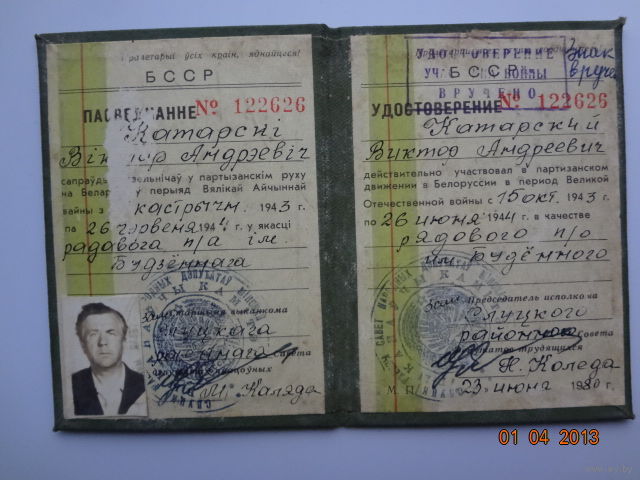 Пралетарыі ўсіх краін, яднайцеся!
БССР
ПАСВЕДЧАННЕ № 122626
Катарскі
Віктар Андрэевіч
сапраўды удзельнічаў у партызанскім руху
на Беларусі ў перыяд Вялікай Айчыннай
вайны з кастрычн. 1943 г.
па 26 чэрвеня 1944 г. у якасці
радавога п/а ім.
Будзённага
выканкома
Слуцкага
раённага Савета
М. Каляда
УДОСТОВЕРЕНИЕ
УЧ ВОЙНЫ
ВРУЧЕНО
Знак
вруче
БССР
УДОСТОВЕРЕНИЕ № 122626
Катарский
Виктор Андреевич
действительно участвовал в партизанском
движении в Белоруссии в период Великой
Отечественной войны с 15 окт. 1943 г.
по 26 июня 1944 г. в качестве
рядового п/о
им. Будённого
зам. Председатель исполкома
Слуцкого
районного Совета
депутатов трудящихся
Н. Коледа
М. П. 23 июня 1980 г.
01 04 2013